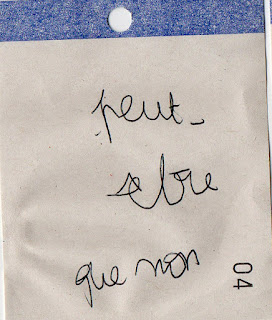 peut-
être
que non
04